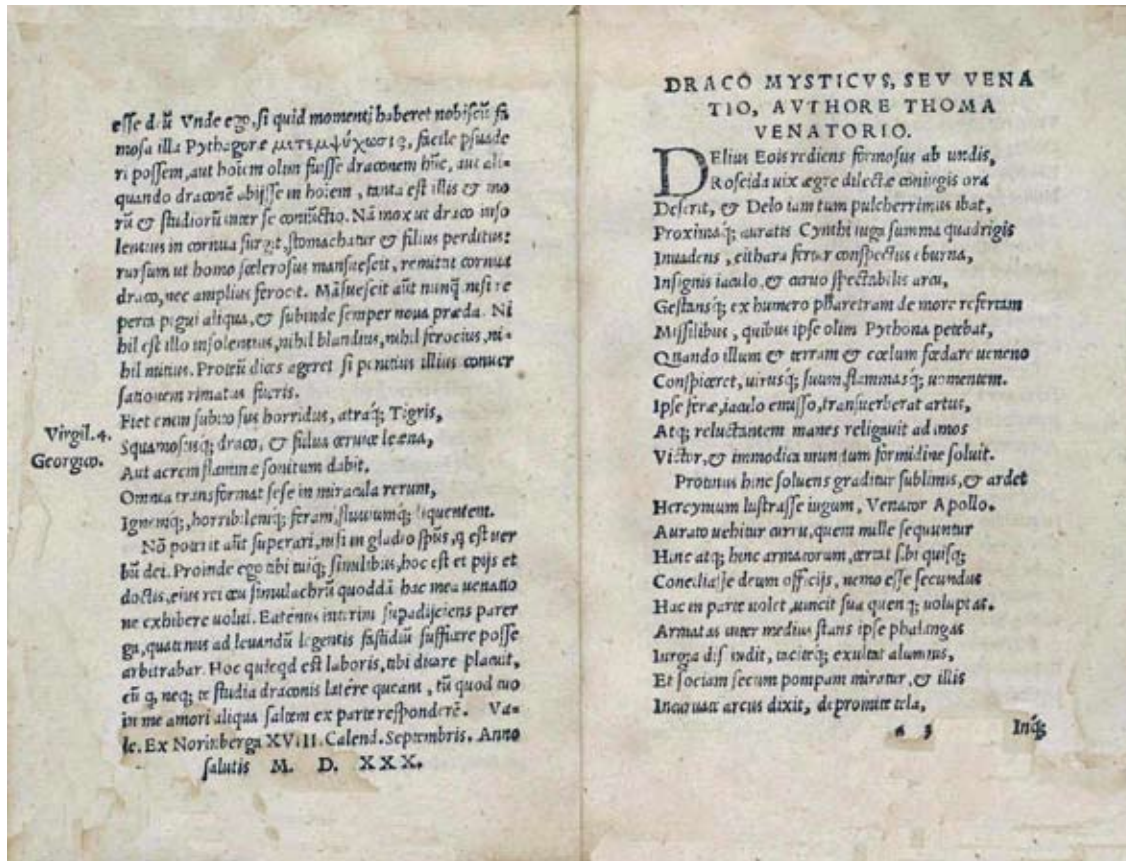 esse dñ. Vnde ego, si quid momenti haberet nobiscũ fa
mosa illa Pythagoræ μετεμψύχωσις, facile psuade
ri possem, aut hoiem olim fuisse draconem hũc, aut ali-
quando draconẽ abijsse in hoiem, tanta est illis & mo
rũ & studiorũ inter se coniũctio. Nã mox ut draco inso
lentius in cornua surgit, stomachatur & filius perditus:
rursum ut homo scelerosus mansuescit, remittit cornua
draco, nec amplius ferocit. Mãsuescit aũt nunq̃ nisi re
perta pigui aliqua, & subinde semper noua præda. Ni
hil est illo insolentius, nihil blandius, nihil ferocius, ni-
hil mitius. Proteũ dicas ageret si penitius illius conuer
sationem rimatus fueris.
Fiet enim subito sus horridus, atraq; Tigris,
Virgil. 4.
Squamosusq; draco, & fulua ceruice leæna,
Georgico.
Aut acrem flammæ sonitum dabit.
Omnia transformat sese in miracula rerum,
Ignemq;, horribilemq; feram, fluuiumq; liquentem.
Nõ poterit aũt superari, nisi in gladio spũs, q̃ est uer
bũ dei. Proinde ego tibi tuiq; similibus, hoc est et pijs et
doctis, eius rei ceu simulachrũ quoddã hac mea uenatio
ne exhibere uolui. Eatenus interim supadijciens parer
ga, quatenus ad leuandũ legentis fastidiũ sufficere posse
arbitrabar. Hoc quicqd est laboris, tibi dicare placuit,
cũ q, neq; te studia draconis latére queant, tũ quod tuo
in me amori aliqua saltem ex parte responderẽ. Va-
le. Ex Norimberga XVIII. Calend. Septembris. Anno
salutis M. D. XXX.
DRACO MYSTICVS, SEV VENA
TIO, AVTHORE THOMA
VENATORIO.
DElius Eois rediens formosus ab undis,
Roscida uix ægre dilectæ coniugis ora
Deserit, & Delo iam tum pulcherrimus ibat,
Proximaq; auratis Cynthi iuga summa quadrigis
Inuadens, cithara fertur conspectus eburna,
Insignis iaculo, & curuo spectabilis arcu,
Gestansq; ex humero pharetram de more refertam
Missilibus, quibus ipse olim Pythona petebat,
Quando illum & terram & cœlum fœdare ueneno
Conspiceret, uirusq; suum, flammasq; uomentem.
Ipse feræ, iaculo emisso, transuerberat artus,
Atq; reluctantem manes religauit ad imos
Victor, & immodica mundum formidine soluit.
Protinus hinc soluens graditur sublimis, & ardet
Hercynium lustrasse iugum, Venator Apollo.
Aurato uehitur curru, quem mille sequuntur
Hinc atq; hinc armatorum, certat sibi quisq;
Conciliasse deum officijs, nemo esse secundus
Hac in parte uolet, uincit sua quenq; uoluptas.
Armatas inter medius stans ipse phalangas
Iurgia dissindit, taciteq; exultat alumnus,
Et sociam secum pompam miratur, & illis
arcus dixit, depromite tela,
a 3 Inq;